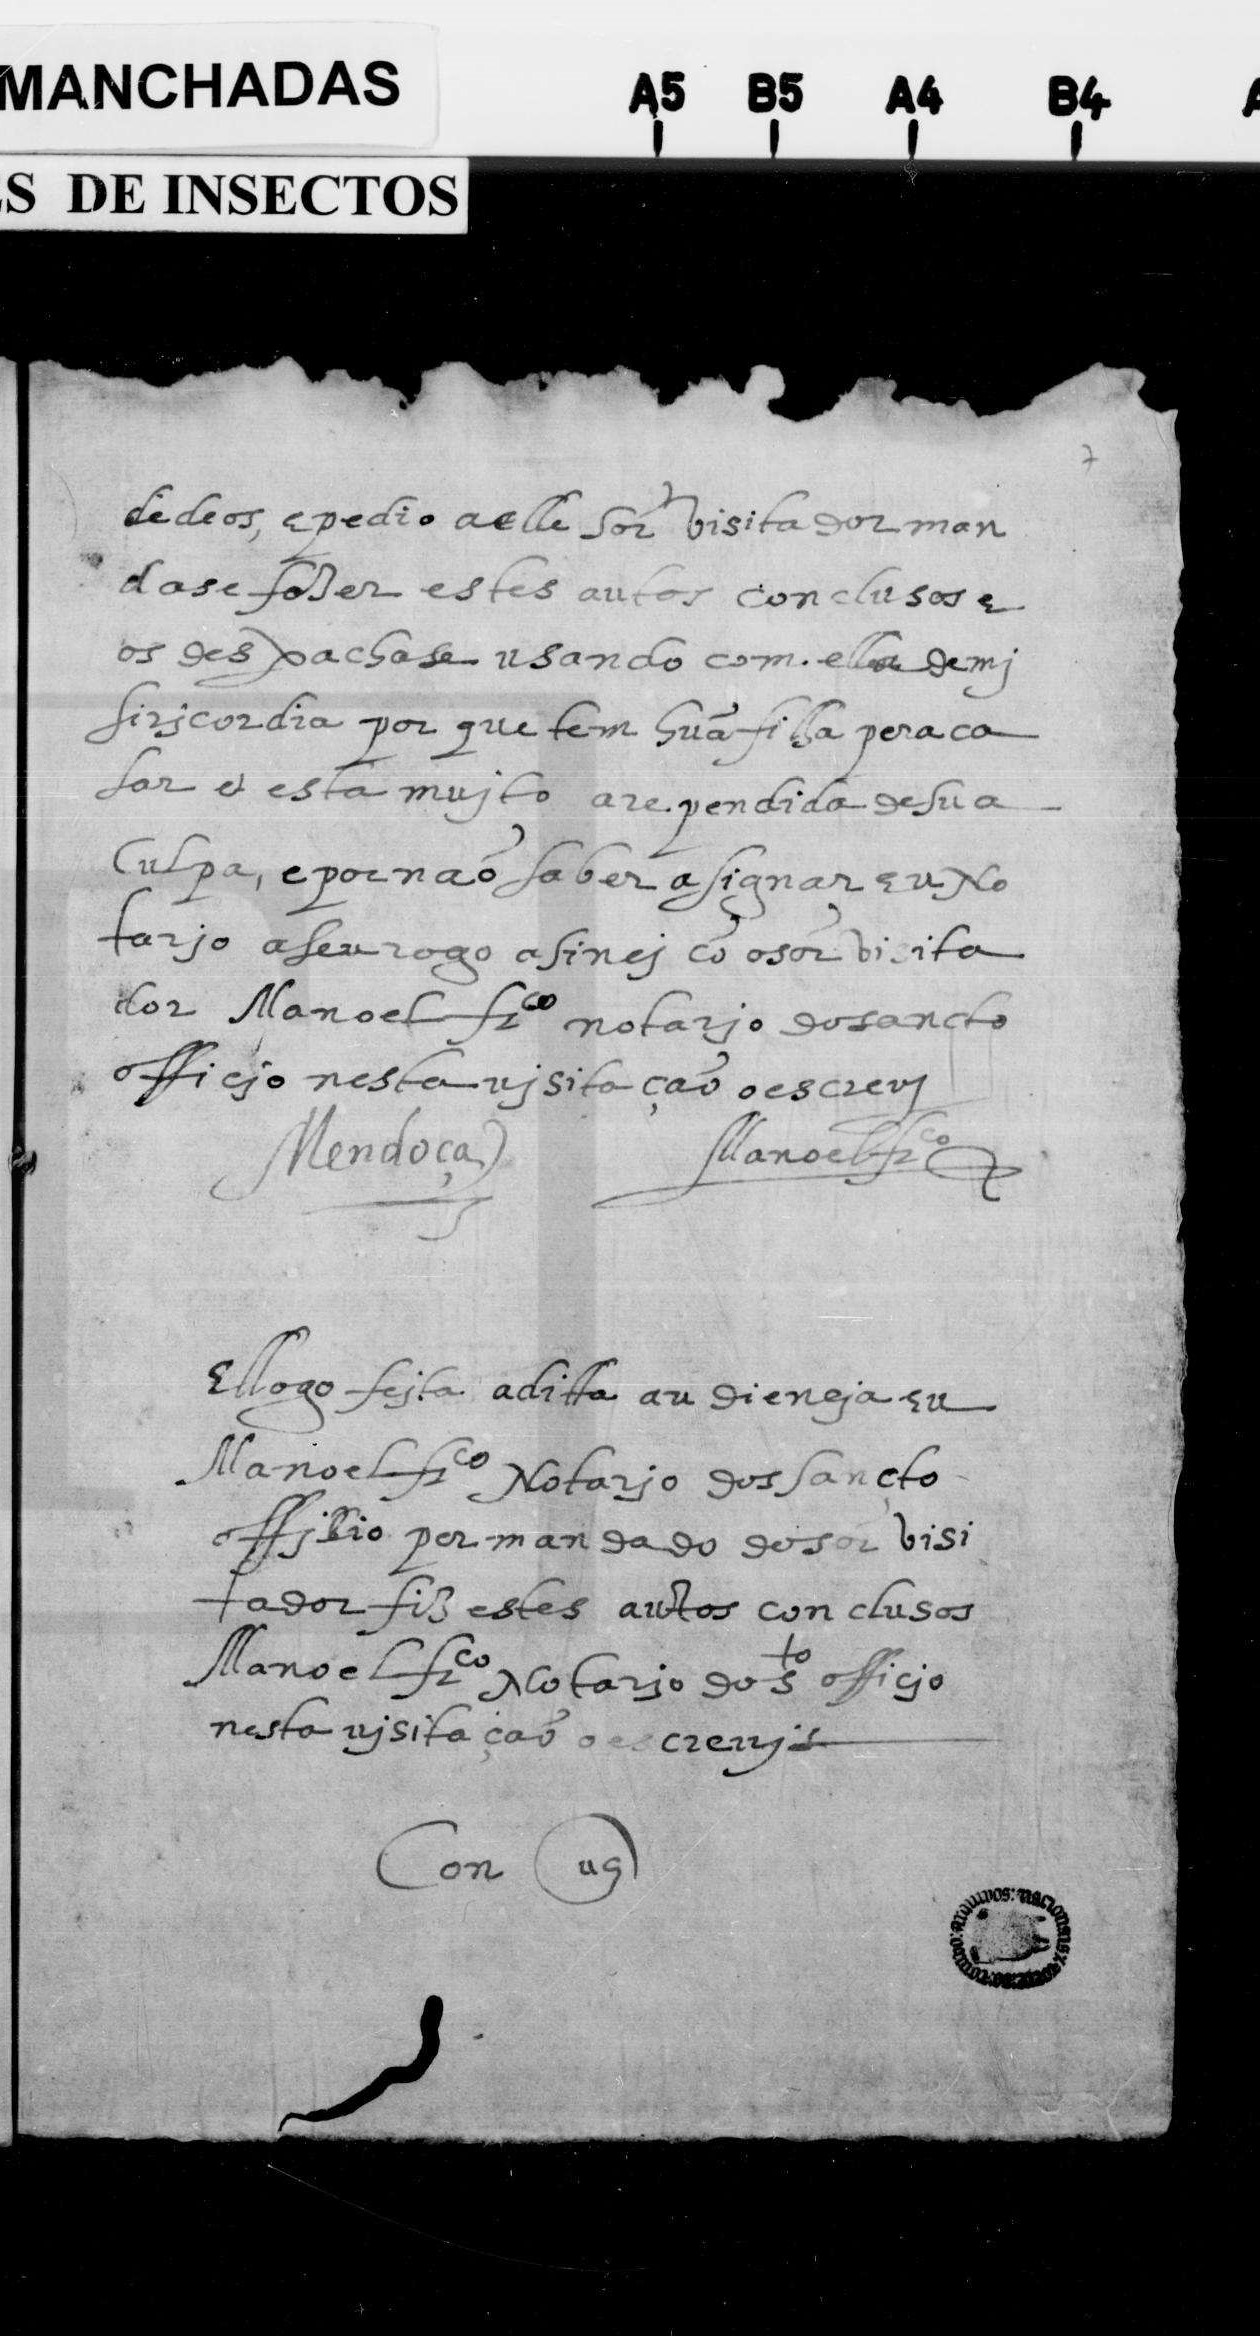 MANCHADAS
ES DE INSECTOS
A5 B5 A4 B4
7
de deos, e pedio a elle sor visitador man
dase fazer estes autos conclusos e
os despachase usando com ella de mj
sirjcordia por que tem huã filha pera ca
sar e esta mujto arependida de sua
Culpa, e por naõ saber asignar eu No
tarjo a seu rogo asinej cõ o sor visita
dor Manoel frco notarjo do sancto
officjo nesta vjsitaçaõ o escrevj
Mendoça Manoel frco
E llogo fejta a ditta audiencja eu
Manoel frco Notarjo do sancto
offjcio per mandado do sor visi
tador fiz estes autos conclusos
Manoel frco Notarjo do sto officjo
nesta vjsitaçaõ o escrevj
Con us